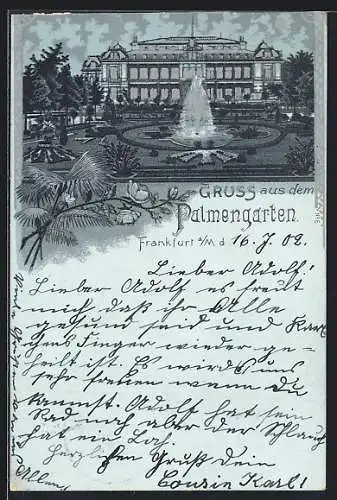 GRUSS aus dem
Palmengarten.
Frankfurt a/M. d 16. 7. 02.
Lieber Adolf!
Lieber Adolf es freut
mich daß ihr Alle
gesund seid und Karl
chens Finger wieder ge-
heilt ist. Es wird uns
sehr freuen wenn du
kommst. Adolf hat sein
Rad noch aber der Schlauch
hat ein Loch.
Herzlichen Gruß dein
Cousin Karl!
Allen!